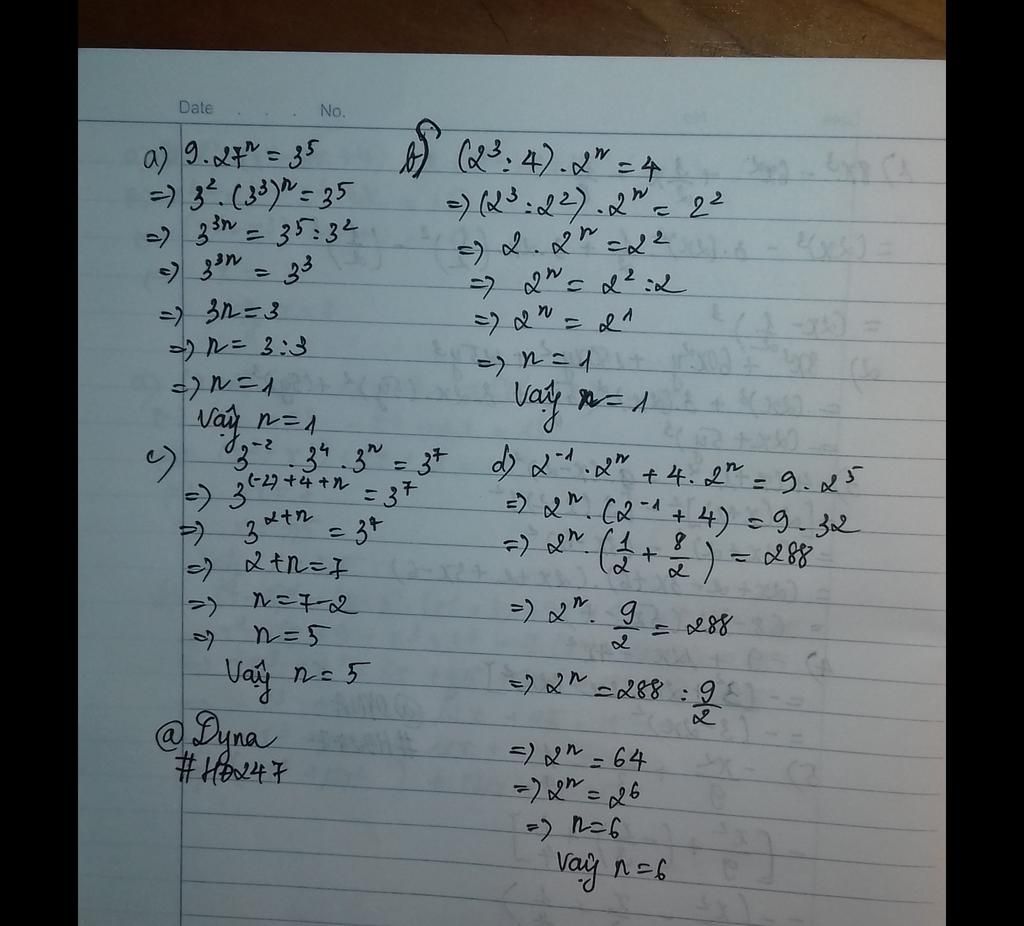 Date . . . No.
a) 9.27ⁿ = 3⁵
=> 3² . (3³)ⁿ = 3⁵
=> 3³ⁿ = 3⁵ : 3²
=> 3³ⁿ = 3³
=> 3n = 3
=> n = 3 : 3
=> n = 1
Vậy n = 1
b) (2³ : 4) . 2ⁿ = 4
=> (2³ : 2²) . 2ⁿ = 2²
=> 2 . 2ⁿ = 2²
=> 2ⁿ = 2² : 2
=> 2ⁿ = 2¹
=> n = 1
Vậy n = 1
c) 3⁻² . 3⁴ . 3ⁿ = 3⁷
=> 3⁽⁻²⁾⁺⁴⁺ⁿ = 3⁷
=> 3²⁺ⁿ = 3⁷
=> 2 + n = 7
=> n = 7 - 2
=> n = 5
Vậy n = 5
@ Dyna
#HD247
d) 2⁻¹ . 2ⁿ + 4 . 2ⁿ = 9 . 2⁵
=> 2ⁿ . (2⁻¹ + 4) = 9 . 32
=> 2ⁿ . (1/2 + 8/2) = 288
=> 2ⁿ . 9/2 = 288
=> 2ⁿ = 288 : 9/2
=> 2ⁿ = 64
=> 2ⁿ = 2⁶
=> n = 6
Vậy n = 6